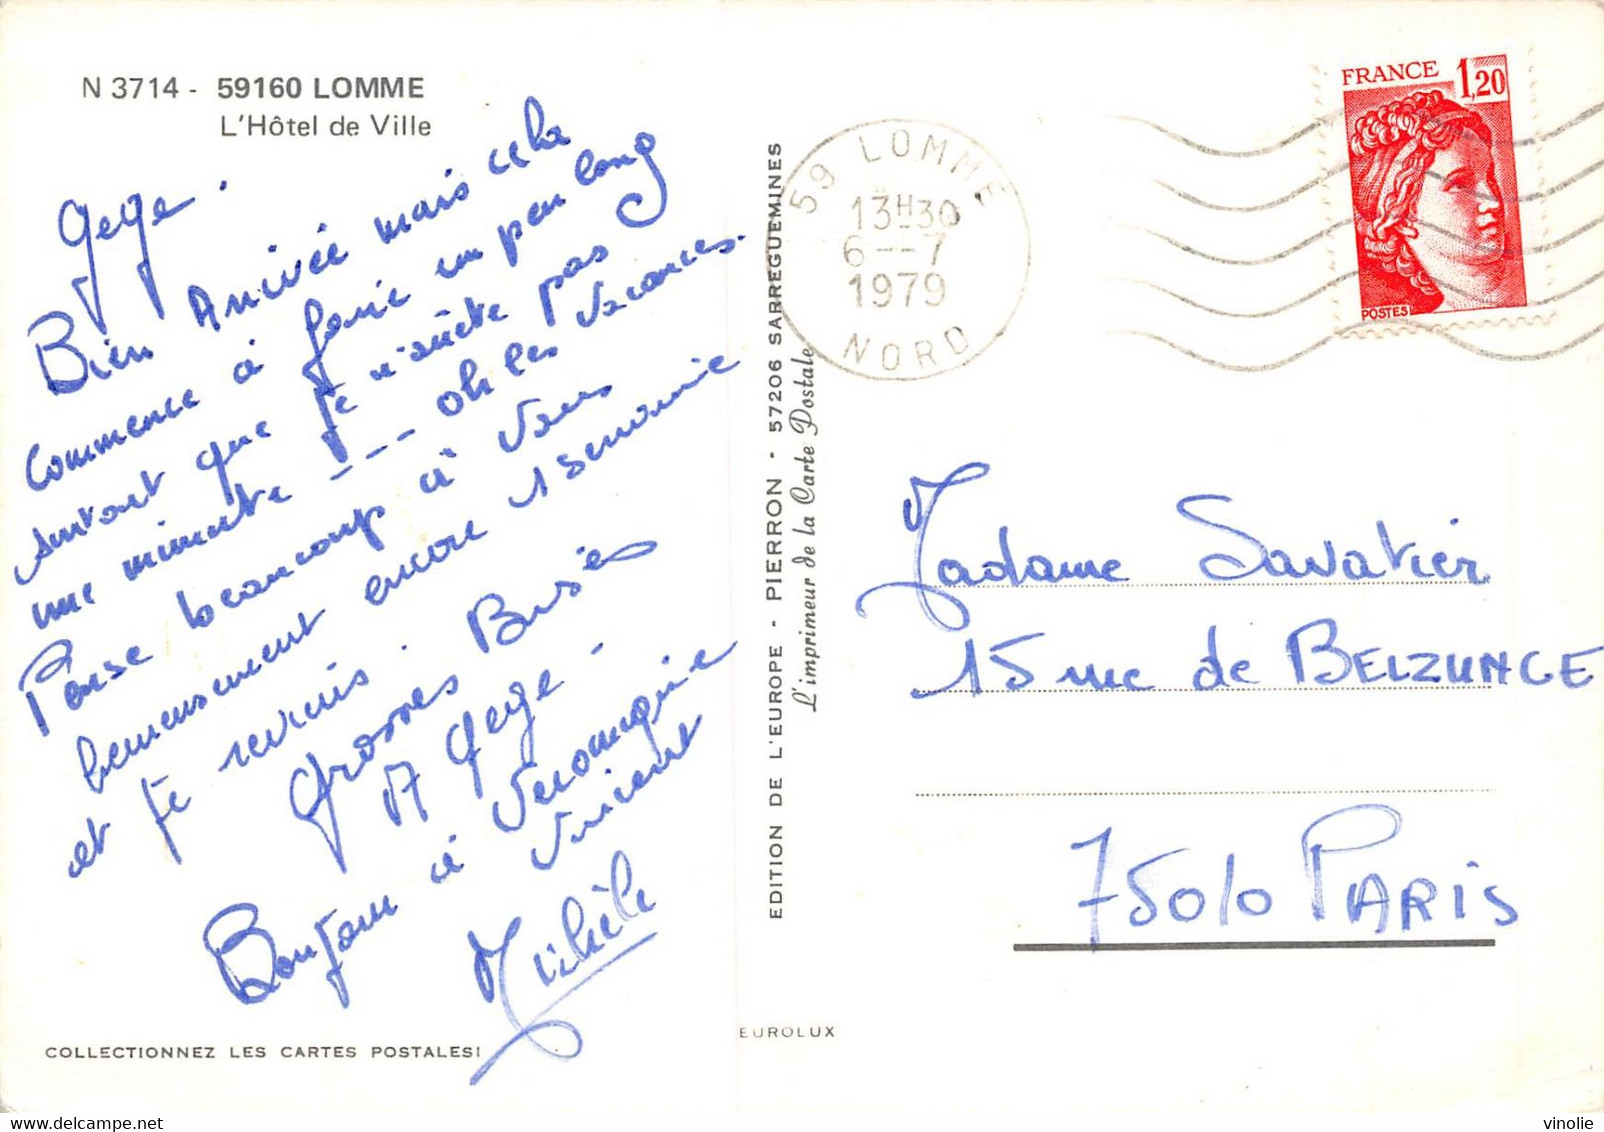 N 3714 - 59160 LOMME
L'Hôtel de Ville
gege.
Bien Arrivée mais cela
commence à faire un peu long
surtout que je n'arrête pas
une minute --- oh les vacances.
Pense beaucoup à vous
heureusement encore 1 semaine
et je reviens.
grosses Bises
A gege -
Bonjour à Veronique
Vincent
Michèle
COLLECTIONNEZ LES CARTES POSTALES!
EDITION DE L'EUROPE - PIERRON - 57206 SARREGUEMINES
L'imprimeur de la Carte Postale
EUROLUX
59 LOMME
13H30
6--7
1979
NORD
FRANCE 1,20
POSTES
Madame Savatier
15 rue de BELZUNCE
75010 PARIS
delcampe.net
vinolie